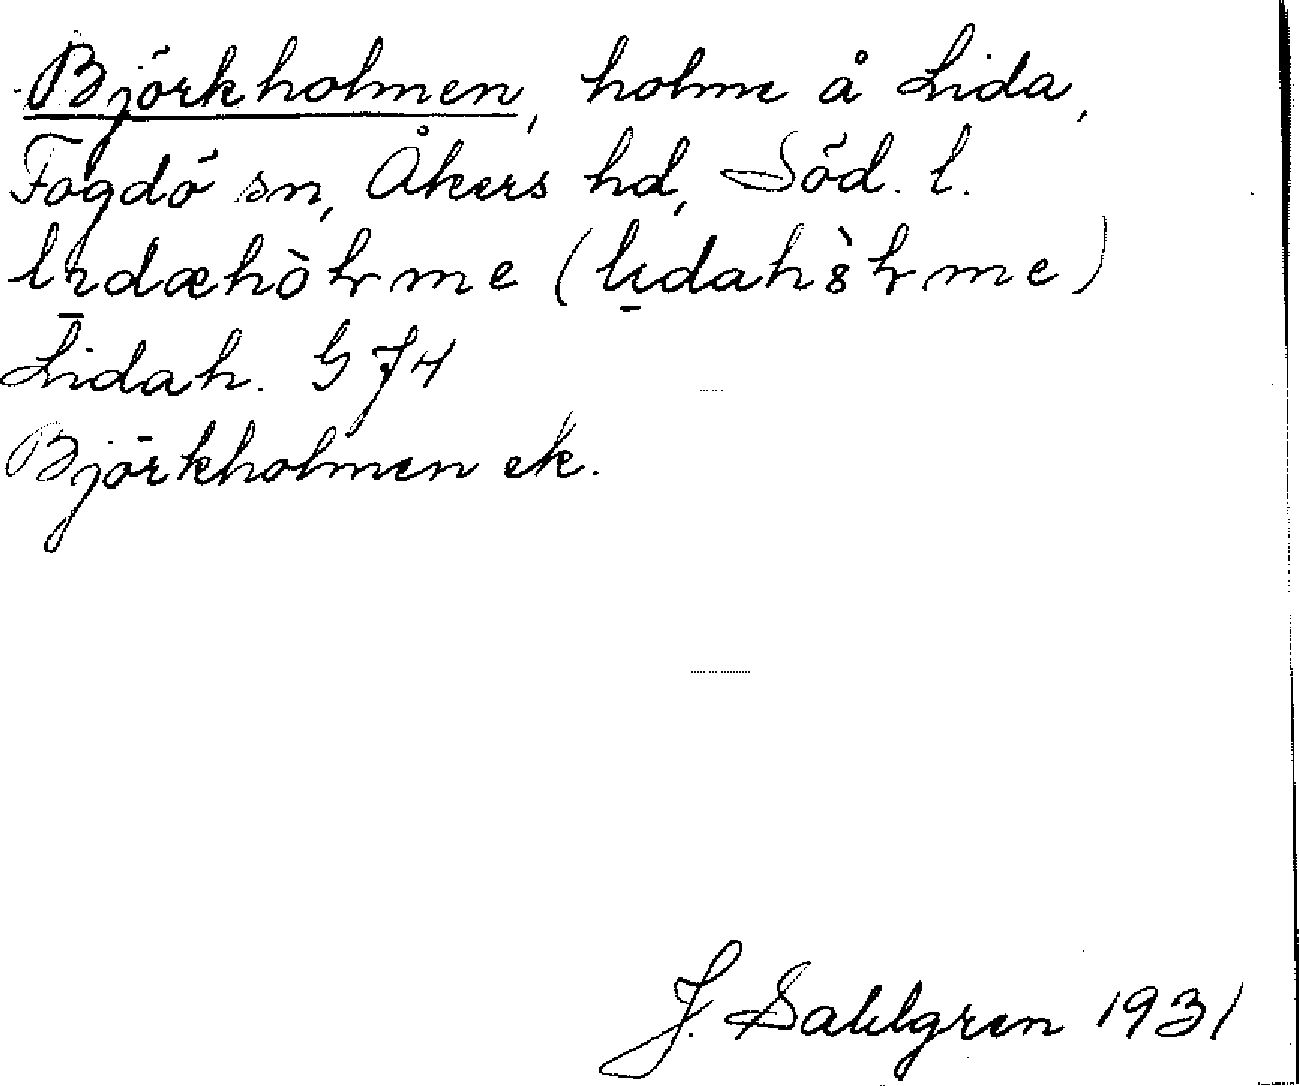 Björkholmen, holme å Lida,
Fogdö sn, Åkers hd, Söd. l.
Lidah. G 74
Björkholmen ek.
J. Sahlgren 1931